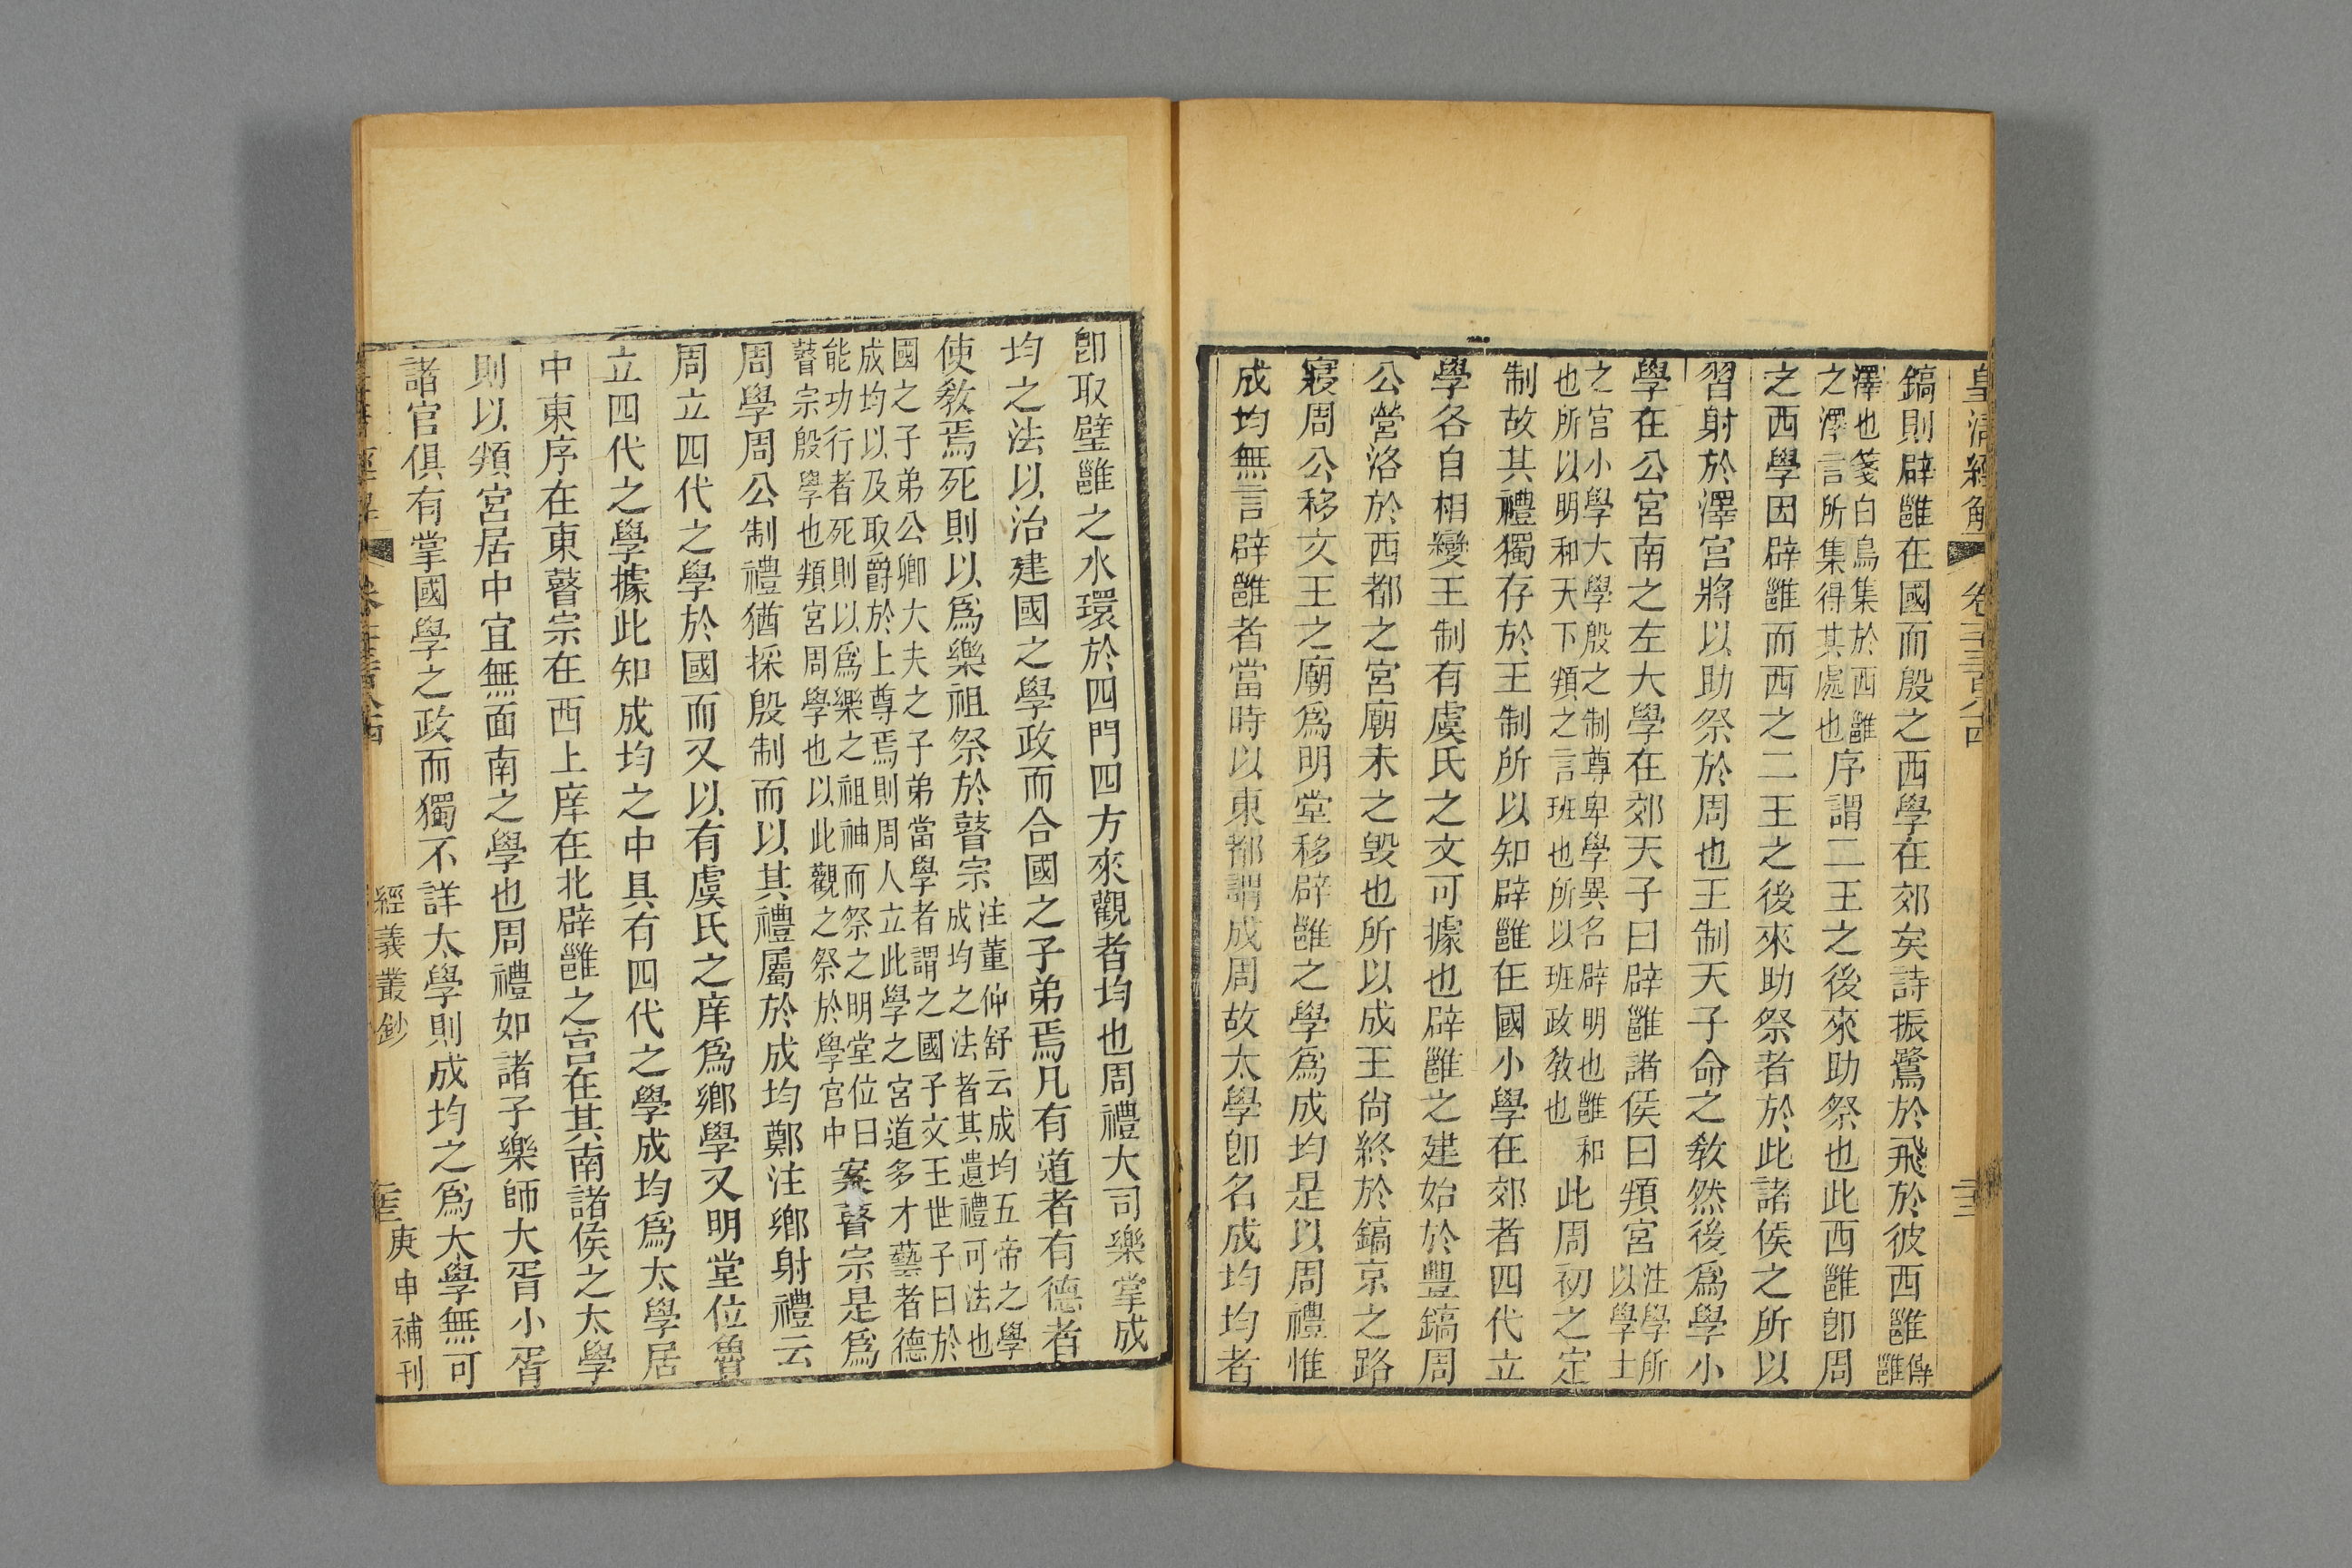 皇清經解
鎬則辟雝在國而殷之西學在郊矣詩振鷺於飛於彼西雝傳雝
澤也箋白鳥集於西雝之澤言所集得其處也序謂二王之後來助祭也此西雝卽周
之西學因辟雝而西之二王之後來助祭者於此諸侯之所以
習射於澤宮將以助祭於周也王制天子命之教然後爲學小
學在公宮南之左大學在郊天子曰辟雝諸侯曰頖宮注學所以學士
之宮小學大學殷之制尊卑學異名辟明也雝和也所以明和天下頖之言班也所以班政教也此周初之定
制故其禮獨存於王制所以知辟雝在國小學在郊者四代立
學各自相變王制有虞氏之文可據也辟雝之建始於豐鎬周
公營洛於西都之宮廟未之毀也所以成王尙終於鎬京之路
寢周公移文王之廟爲明堂移辟雝之學爲成均是以周禮惟
成均無言辟雝者當時以東都謂成周故太學卽名成均均者
卽取璧雝之水環於四門四方來觀者均也周禮大司樂掌成
均之法以治建國之學政而合國之子弟焉凡有道者有德者
使教焉死則以爲樂祖祭於瞽宗注董仲舒云成均五帝之學成均之法者其遺禮可法也
國之子弟公卿大夫之子弟當學者謂之國子文王世子曰於成均以及取爵於上尊焉則周人立此學之宮道多才藝者德
能功行者死則以爲樂之祖神而祭之明堂位曰瞽宗殷學也頖宮周學也以此觀之祭於學宮中案瞽宗是爲
周學周公制禮猶採殷制而以其禮屬於成均鄭注鄉射禮云
周立四代之學於國而又以有虞氏之庠爲鄉學又明堂位魯
立四代之學據此知成均之中具有四代之學成均爲太學居
中東序在東瞽宗在西上庠在北辟雝之宮在其南諸侯之太學
則以頖宮居中宜無面南之學也周禮如諸子樂師大胥小胥
諸官俱有掌國學之政而獨不詳太學則成均之爲大學無可
經義叢鈔
庚申補刊